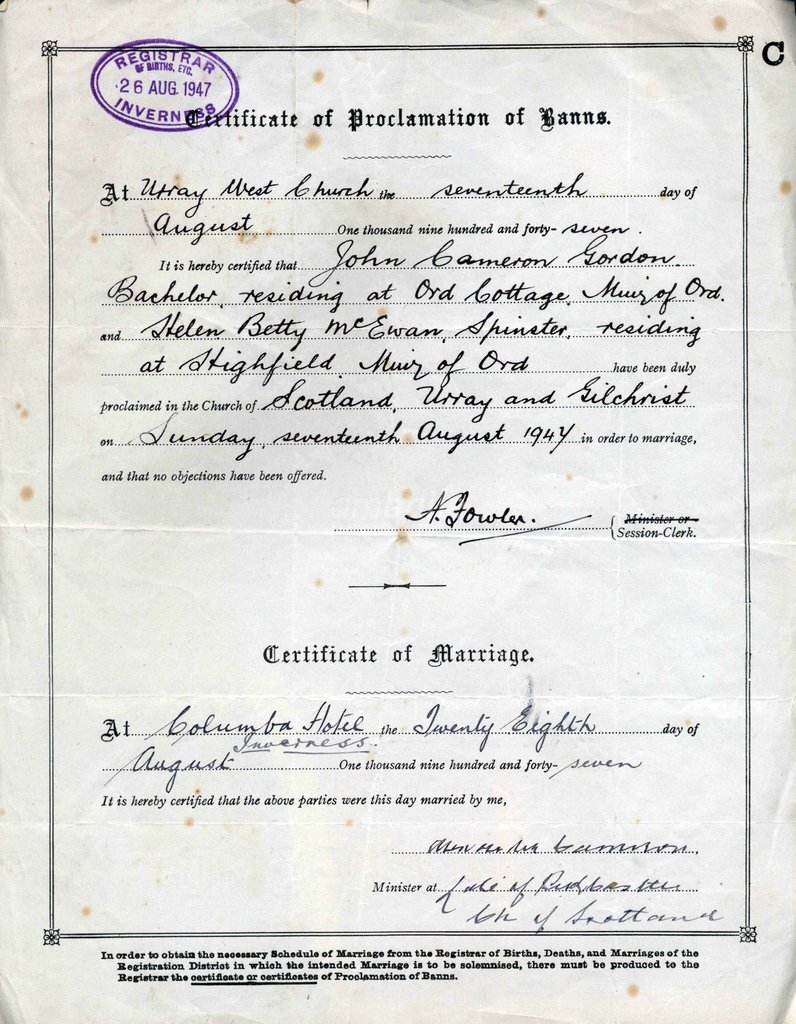 C
REGISTRAR
OF BIRTHS, ETC.
26 AUG. 1947
INVERNESS
Certificate of Proclamation of Banns.
At Urray West Church the seventeenth day of
August One thousand nine hundred and forty- seven.
It is hereby certified that John Cameron Gordon.
Bachelor, residing at Ord Cottage, Muir of Ord.
and Helen Betty McEwan, Spinster, residing
at Highfield, Muir of Ord have been duly
proclaimed in the Church of Scotland, Urray and Gilchrist
on Sunday, seventeenth August 1947 in order to marriage,
and that no objections have been offered.
A. Fowler. { Minister or
Session-Clerk.
Certificate of Marriage.
At Columba Hotel the Twenty Eighth day of
Inverness.
August One thousand nine hundred and forty- seven
It is hereby certified that the above parties were this day married by me,
Cameron,
Minister at late of Redcastle
Ch of Scotland
In order to obtain the necessary Schedule of Marriage from the Registrar of Births, Deaths, and Marriages of the
Registration District in which the intended Marriage is to be solemnised, there must be produced to the
Registrar the certificate or certificates of Proclamation of Banns.